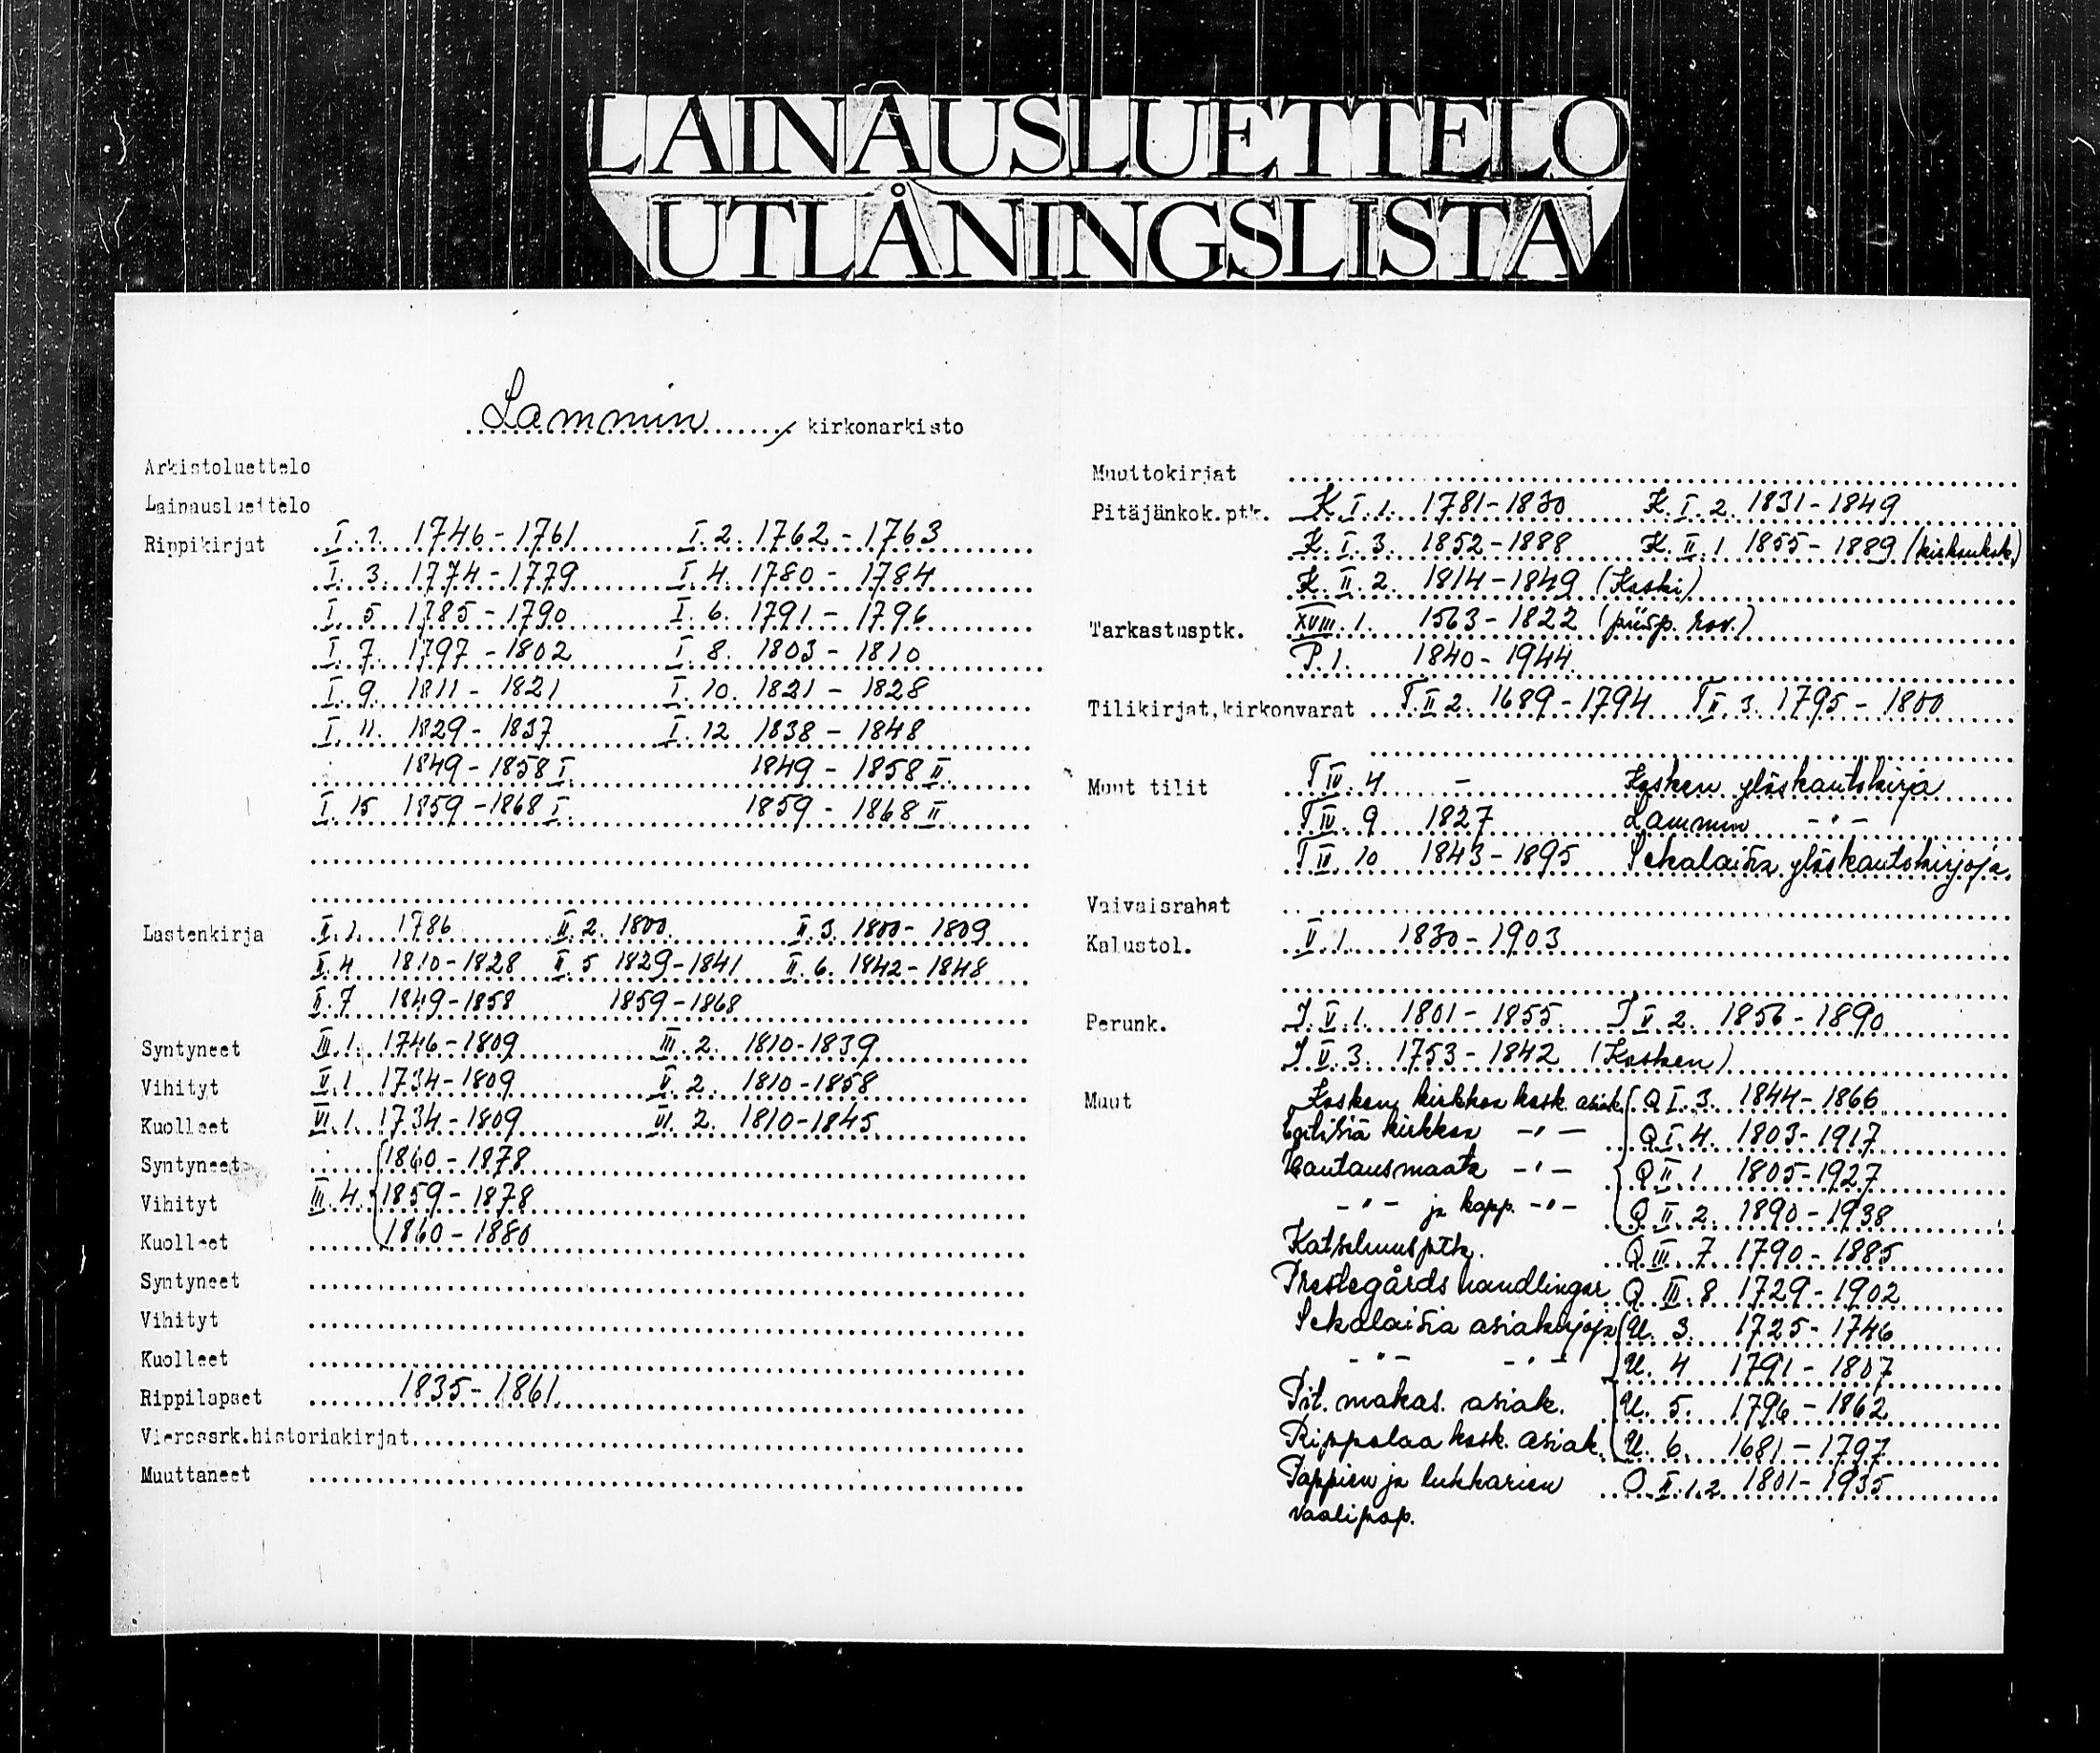 LAINAUSLUETTELO
UTLÅNINGSLISTA
Lammin kirkonarkisto
Arkistoluettelo
Lainausluettelo
Rippikirjat I.1. 1746-1761 I.2. 1762-1763
I.3. 1774-1779 I.4. 1780-1784
I.5 1785-1790 I.6. 1791-1796
I.7. 1797-1802 I.8. 1803-1810
I.9. 1811-1821 I.10. 1821-1828
I.11. 1829-1837 I.12 1838-1848
1849-1858 I. 1849-1858 II.
I.15 1859-1868 I. 1859-1868 II
Lastenkirja II.1. 1786 II.2. 1800 II.3. 1800-1809
II.4 1810-1828 II.5 1829-1841 II.6. 1842-1848
II.7 1849-1858 1859-1868
Syntyneet III.1. 1746-1809 III.2. 1810-1839
Vihityt V.1 1734-1809 V.2. 1810-1858
Kuolleet VI.1. 1734-1809 VI.2. 1810-1845
Syntyneet 1860-1878
Vihityt III.4. 1859-1878
Kuolleet 1860-1880
Syntyneet
Vihityt
Kuolleet
Rippilapset 1835-1861
Vierassrk.historiakirjat
Muuttaneet
Muuttokirjat
Pitäjänkok.ptk. K.I.1. 1781-1830 K.I.2. 1831-1849
K.I.3. 1852-1888 K.II.1 1855-1889 (kirkonkok.)
K.II.2. 1814-1849 (Koski)
Tarkastusptk. XVIII.1. 1563-1822 (piisp. rov.)
P.1. 1840-1944.
Tilikirjat, kirkonvarat T II 2. 1689-1794 T II 3. 1795-1800
Muut tilit T IV. 4 - Kosken yläskantokirja
T IV. 9 1827 Lammin -"-
T IV 10 1843-1895 Sekalaisia yläskantokirjoja.
Vaivaisrahat
Kalustol. V.1. 1830-1903
Perunk. J.V.1. 1801-1855 J V 2. 1856-1890
J V.3. 1753-1842 (Kosken)
Muut Kosken kirkkoa kosk. asiak. Q I.3. 1844-1866
kirkkoa -"- Q I.4. 1803-1917
Hautausmaata -"- Q II.1 1805-1927
-"- ja kapp. -"- Q II.2. 1890-1938
Katselmusptk. Q III.7 1790-1885
Prestegårds handlingar Q III.8 1729-1902
Sekalaisia asiakirjoja U. 3. 1725-1746
-"- -"- U. 4 1791-1807
Pit. makas. asiak. U. 5. 1796-1862
Rippalaa kosk. asiak. U. 6. 1681-1797
Pappien ja lukkarien O II.1.2 1801-1935
vaalipap.